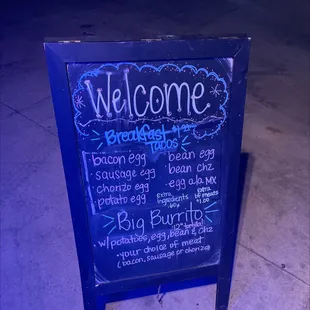 Welcome
Breakfast $1.99
Tacos
• bacon egg
• sausage egg
• chorizo egg
• potato egg
• bean egg
• bean chz
• egg a la MX
Extra
ingredients
60¢
extra
meats
$1.00
Big Burrito
12" tortilla
w/potatoes, egg, bean & chz
• your choice of meat
(bacon, sausage or chorizo)